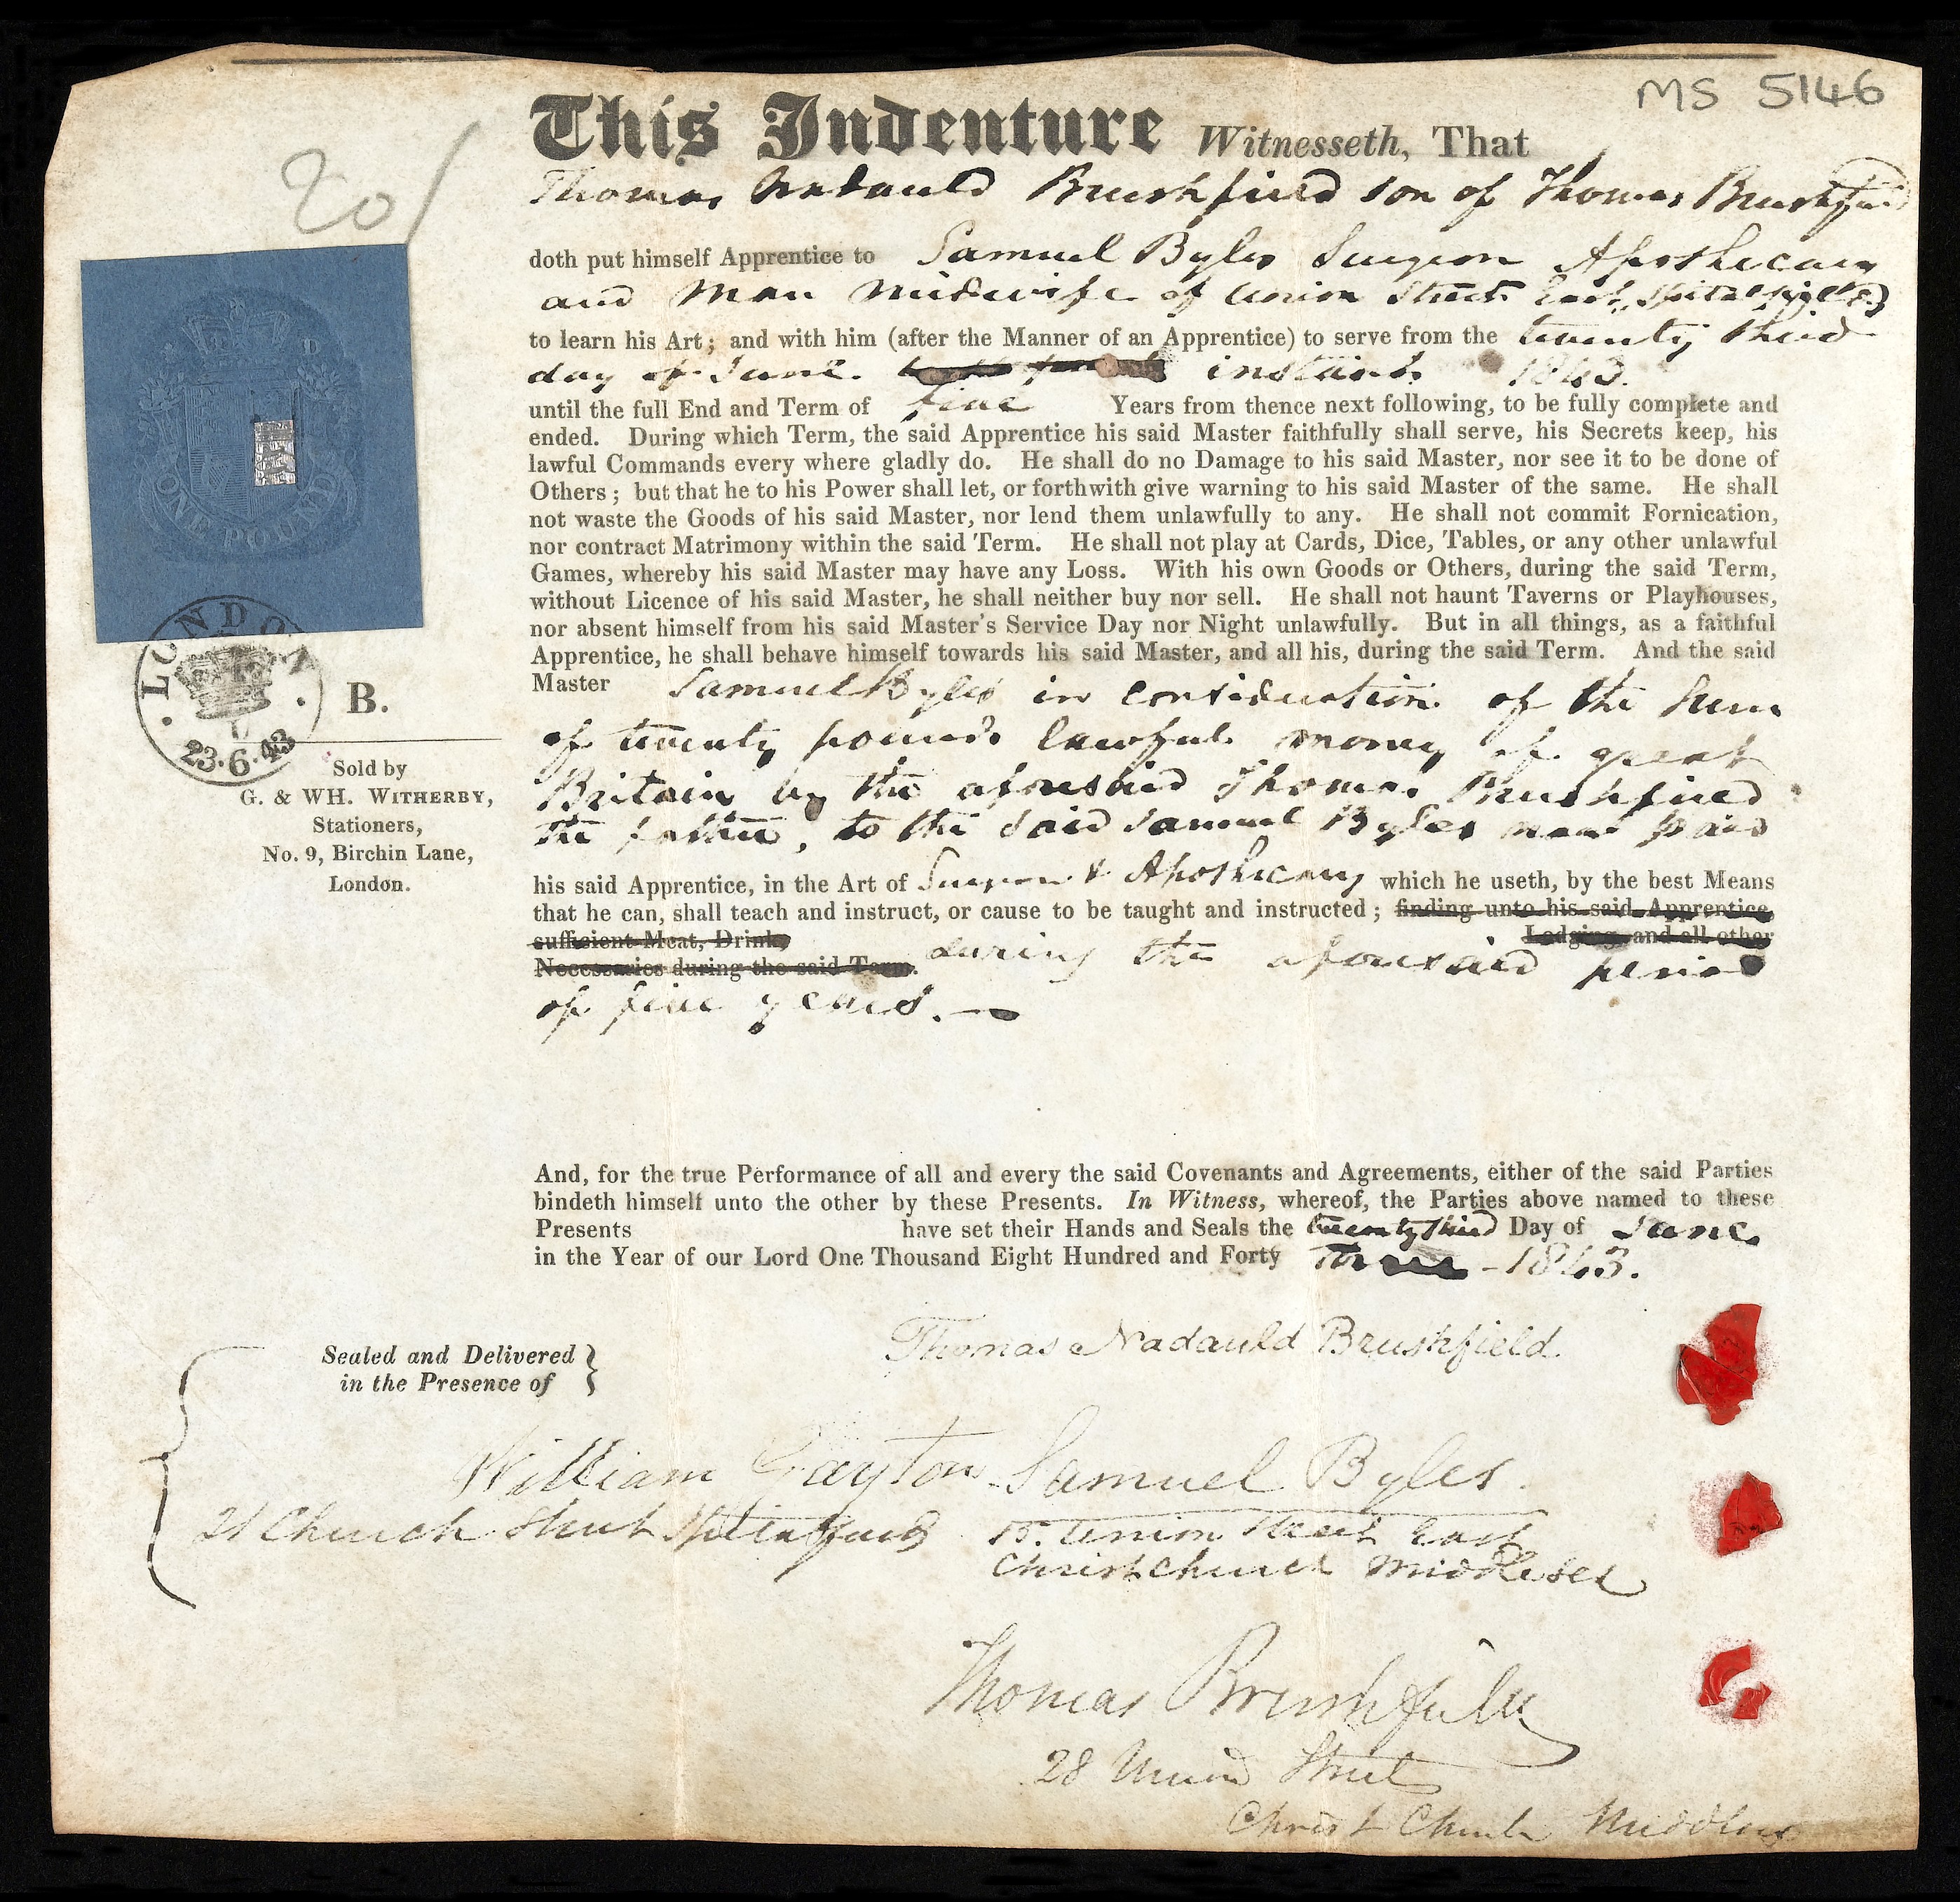 MS 5146
20/
This Indenture Witnesseth, That
Thomas Nadauld Brushfield son of Thomas Brushfield
doth put himself Apprentice to Samuel Byles Surgeon Apothecary
and Man Midwife of Union Street East, Spitalfields
to learn his Art; and with him (after the Manner of an Apprentice) to serve from the twenty third
day of June instant 1843.
until the full End and Term of five Years from thence next following, to be fully complete and
ended. During which Term, the said Apprentice his said Master faithfully shall serve, his Secrets keep, his
lawful Commands every where gladly do. He shall do no Damage to his said Master, nor see it to be done of
Others; but that he to his Power shall let, or forthwith give warning to his said Master of the same. He shall
not waste the Goods of his said Master, nor lend them unlawfully to any. He shall not commit Fornication,
nor contract Matrimony within the said Term. He shall not play at Cards, Dice, Tables, or any other unlawful
Games, whereby his said Master may have any Loss. With his own Goods or Others, during the said Term,
without Licence of his said Master, he shall neither buy nor sell. He shall not haunt Taverns or Playhouses,
nor absent himself from his said Master's Service Day nor Night unlawfully. But in all things, as a faithful
Apprentice, he shall behave himself towards his said Master, and all his, during the said Term. And the said
Master Samuel Byles in consideration of the Sum
of twenty pounds lawful money of great
Britain by the aforesaid Thomas Brushfield
the father, to the said Samuel Byles now paid
his said Apprentice, in the Art of Surgeon & Apothecary which he useth, by the best Means
that he can, shall teach and instruct, or cause to be taught and instructed; finding unto his said Apprentice
sufficient Meat, Drink, Lodging, and all other
Necessaries during the said Term. during the aforesaid period
of five years.
And, for the true Performance of all and every the said Covenants and Agreements, either of the said Parties
bindeth himself unto the other by these Presents. In Witness, whereof, the Parties above named to these
Presents have set their Hands and Seals the twenty third Day of June
in the Year of our Lord One Thousand Eight Hundred and Forty Three - 1843.
ONE POUND
LONDON
23.6.43
B.
Sold by
G. & WH. WITHERBY,
Stationers,
No. 9, Birchin Lane,
London.
Sealed and Delivered
in the Presence of
William Gayton
21 Church Street Spitalfields
Thomas Nadauld Brushfield.
Samuel Byles.
15. Union Street East
Christchurch Middlesex
Thomas Brushfield
28 Union Street
Christ Church Middlesex